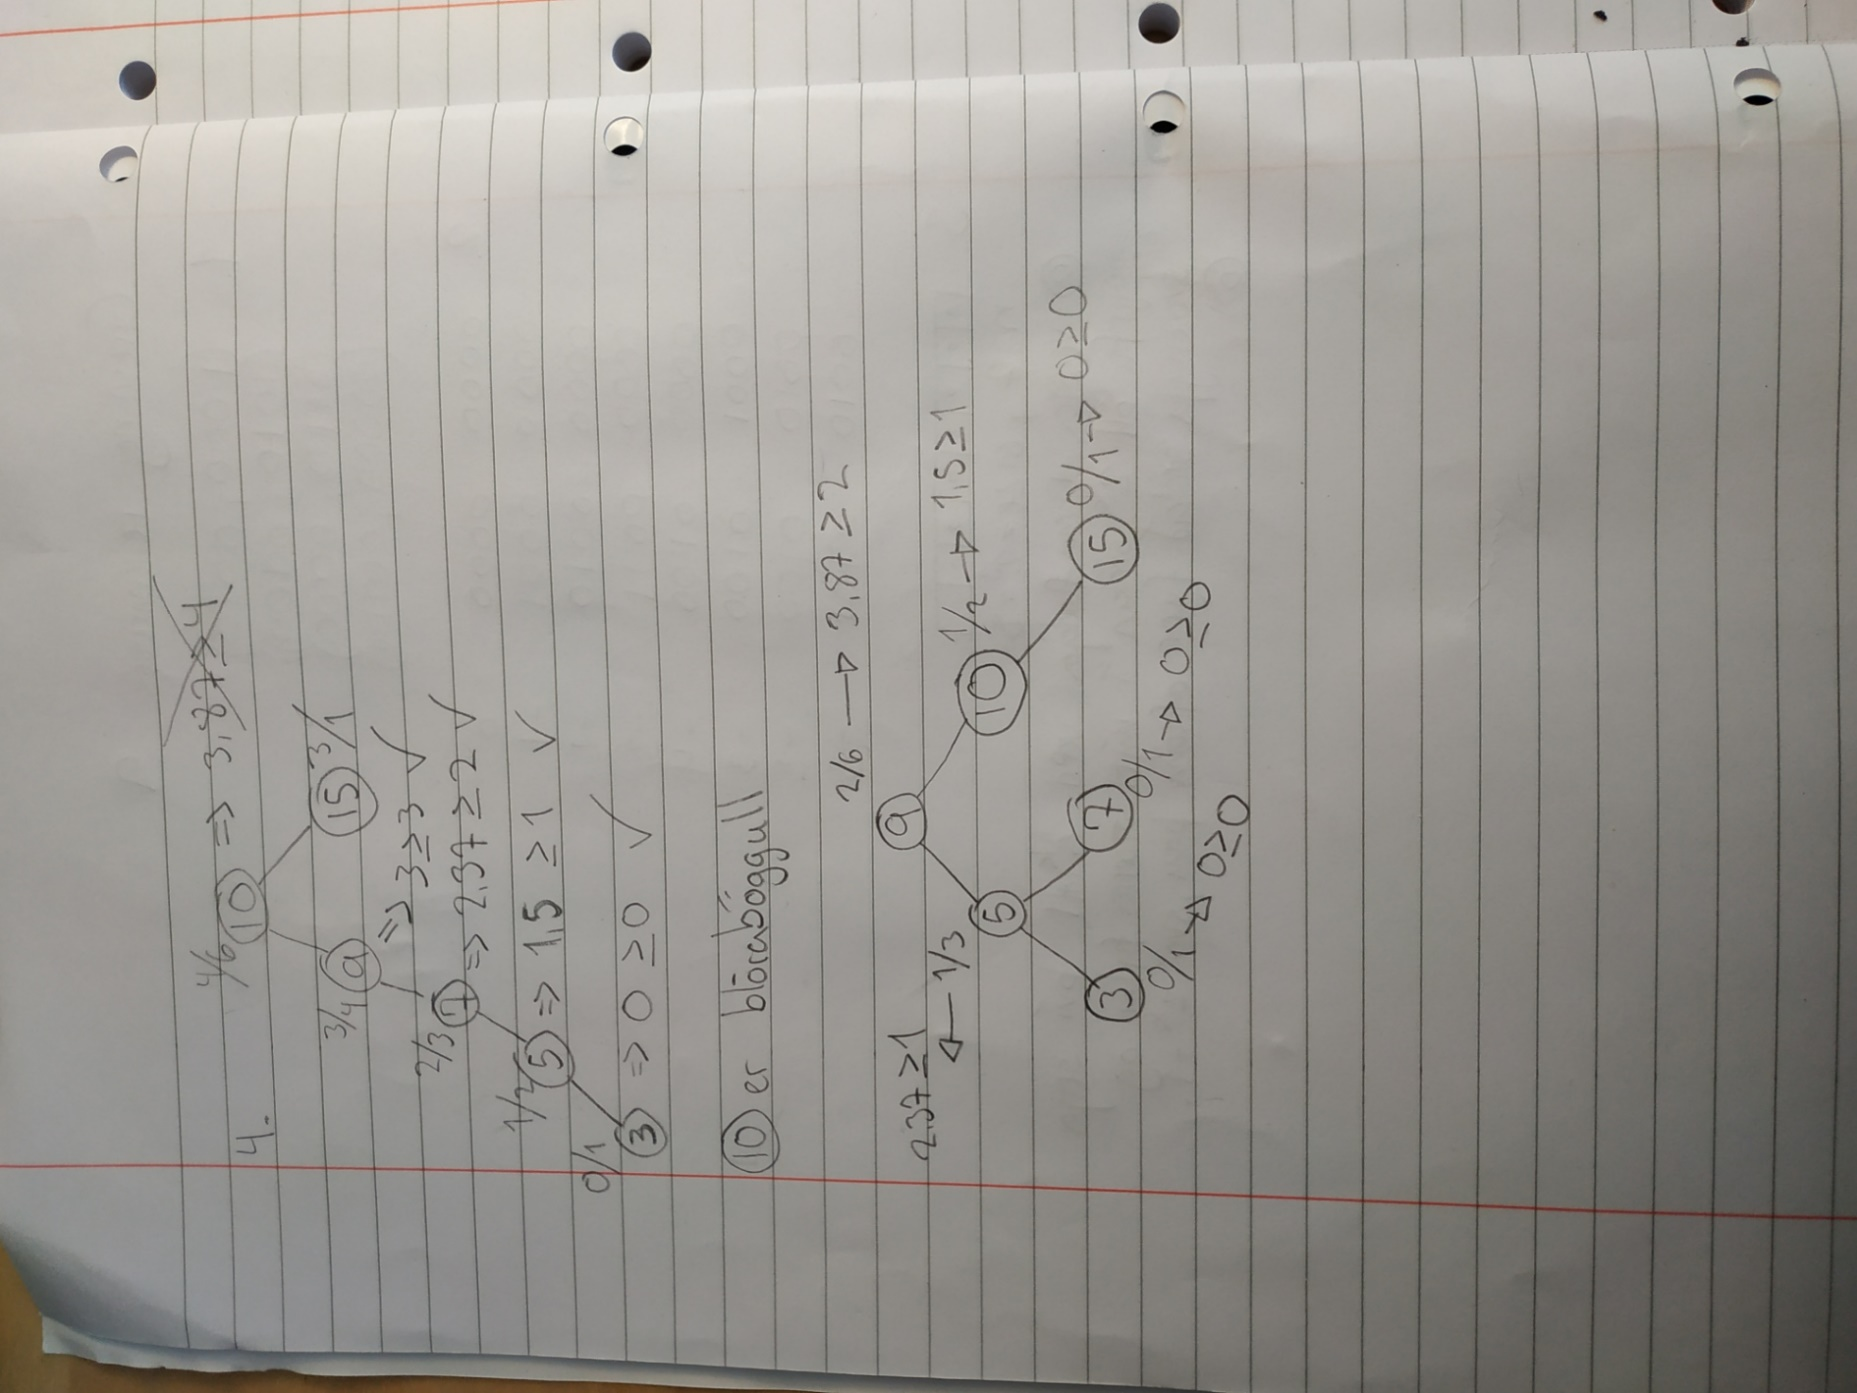 4. 4/6 10 => 3,87 ≥ 4
3/4 9 => 3 ≥ 3 ✓ 15 3/1
2/3 7 => 2,37 ≥ 2 ✓
1/2 5 => 1,5 ≥ 1 ✓
0/1 3 => 0 ≥ 0 ✓
10 er blórabóggull
9 2/6 → 3,87 ≥ 2
2,37 ≥ 1 ← 1/3 5 10 1/2 → 1,5 ≥ 1
3 7 15 0/1 → 0 ≥ 0
0/1 → 0 ≥ 0 0/1 → 0 ≥ 0